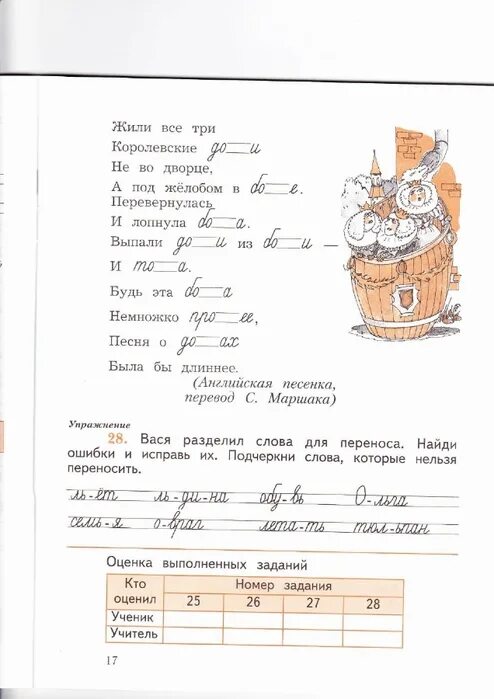 Жили все три
Королевские до__и
Не во дворце,
А под жёлобом в бо__е.
Перевернулась
И лопнула бо__а.
Выпали до__и из бо__и —
И то__а.
Будь эта бо__а
Немножко про__ее,
Песня о до__ах
Была бы длиннее.
(Английская песенка,
перевод С. Маршака)
Упражнение
28. Вася разделил слова для переноса. Найди
ошибки и исправь их. Подчеркни слова, которые нельзя
переносить.
ль-ёт ль-ди-на обу-вь О-льга
семь-я о-враг лета-ть тюл-ьпан
Оценка выполненных заданий
Кто оценил Номер задания
25 26 27 28
Ученик
Учитель
17